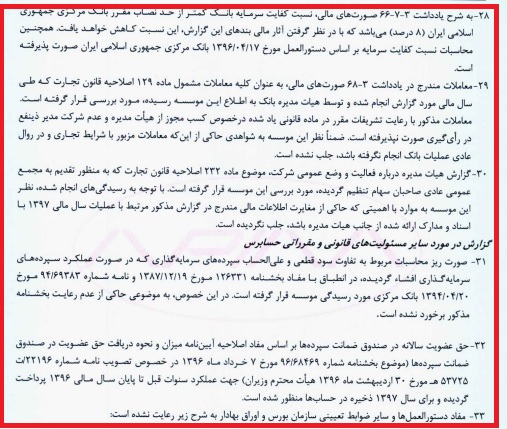 ۲۸-به شرح یادداشت ۳-۷-۶۶ صورت‌های مالی، نسبت کفایت سرمایه بانک کمتر از حد نصاب مقرر بانک مرکزی جمهوری
اسلامی ایران (۸ درصد) می‌باشد که با در نظر گرفتن آثار مالی بندهای این گزارش، این نسبت کاهش خواهد یافت. همچنین
محاسبات نسبت کفایت سرمایه بر اساس دستورالعمل مورخ ۱۳۹۶/۰۴/۱۷ بانک مرکزی جمهوری اسلامی ایران صورت پذیرفته
است.
۲۹-معاملات مندرج در یادداشت ۳-۶۸ صورت‌های مالی، به عنوان کلیه معاملات مشمول ماده ۱۲۹ اصلاحیه قانون تجارت که طی
سال مالی مورد گزارش انجام شده و توسط هیات مدیره بانک به اطلاع این موسسه رسیده، مورد بررسی قرار گرفته است.
معاملات مذکور با رعایت تشریفات مقرر در ماده قانونی یاد شده درخصوص کسب مجوز از هیأت مدیره و عدم شرکت مدیر ذینفع
در رأی‌گیری صورت نپذیرفته است. ضمناً نظر این موسسه به شواهدی حاکی از این‌که معاملات مزبور با شرایط تجاری و در روال
عادی عملیات بانک انجام نگرفته باشد، جلب نشده است.
۳۰-گزارش هیات مدیره درباره فعالیت و وضع عمومی شرکت، موضوع ماده ۲۳۲ اصلاحیه قانون تجارت که به منظور تقدیم به مجمع
عمومی عادی صاحبان سهام تنظیم گردیده، مورد بررسی این موسسه قرار گرفته است. با توجه به رسیدگی‌های انجام شده، نظر
این موسسه به موارد با اهمیتی که حاکی از مغایرت اطلاعات مالی مندرج در گزارش مذکور مرتبط با عملیات سال مالی ۱۳۹۷ با
اسناد و مدارک ارائه شده از جانب هیات مدیره باشد، جلب نگردیده است.
گزارش در مورد سایر مسئولیت‌های قانونی و مقرراتی حسابرس
۳۱- صورت ریز محاسبات مربوط به تفاوت سود قطعی و علی‌الحساب سپرده‌های سرمایه‌گذاری که در صورت عملکرد سپرده‌های
سرمایه‌گذاری افشاء گردیده، در انطباق با مفاد بخشنامه ۱۲۶۳۳۱ مورخ ۱۳۸۷/۱۲/۱۹ و نامه شماره ۹۴/۶۹۳۸۳ مورخ
۱۳۹۴/۰۴/۲۰ بانک مرکزی مورد رسیدگی موسسه قرار گرفته است. در این خصوص، به موضوعی حاکی از عدم رعایت بخشنامه
مذکور برخورد نشده است.
۳۲-حق عضویت سالانه در صندوق ضمانت سپرده‌ها بر اساس مفاد اصلاحیه آیین‌نامه میزان و نحوه دریافت حق عضویت در صندوق
ضمانت سپرده‌ها (موضوع بخشنامه شماره ۹۶/۶۸۴۶۹ مورخ ۷ خرداد ماه ۱۳۹۶ در خصوص تصویب نامه شماره ۲۲۱۹۶/ت
۵۳۷۲۵ هـ مورخ ۳۰ اردیبهشت ماه ۱۳۹۶ هیأت محترم وزیران) جهت عملکرد سنوات قبل تا پایان سال مالی ۱۳۹۶ پرداخت
گردیده و برای سال ۱۳۹۷ ذخیره در حساب‌ها منظور شده است.
۳۳- مفاد دستورالعمل‌ها و سایر ضوابط تعیینی سازمان بورس و اوراق بهادار به شرح زیر رعایت نشده است: